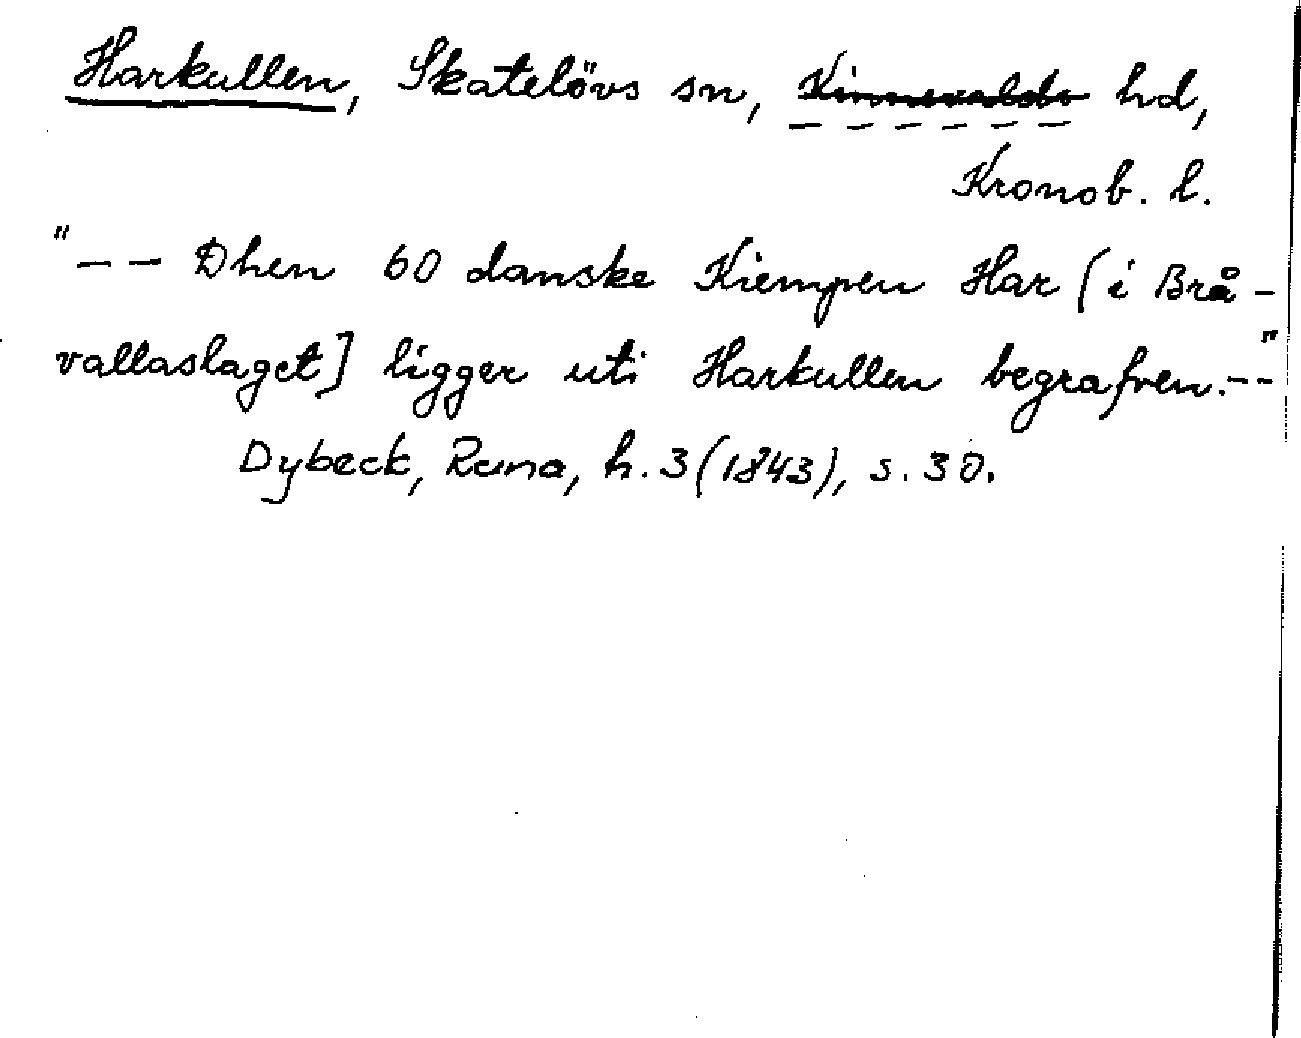 Harkullen, Skatelövs sn, Kinnevalds hd,
Kronob. l.
"-- Dhen 60 danske Kiempen Har (i Brå-
vallaslaget] ligger uti Harkullen begrafven.--"
Dybeck, Runa, h. 3 (1843), s. 30.